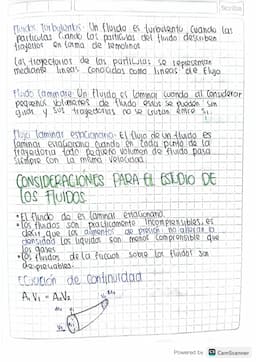 Fluidos Turbulentos: Un Fluido es turbulento cuando las
particulas Cuando las particulas del fluido describen
trayectorias en forma de remolinos
Las trayectorias de las particulas se representan
mediante lineas conocidas como lineas de Flujo
Fluido Laminar: Un fluido es laminar cuando al considerar
pequeños volumenes de fluido estos se pueden
y sus trayectorias no se cruzan entre si.
Flujo laminar estacionario: El flujo de un fluido es
laminar estacionario cuando en cada punto de la
trayectoria todo pequeño volumen de fluido pasa
siempre con la misma velocidad.
CONSIDERACIONES PARA EL ESTUDIO DE
LOS FLUIDOS
• El fluido de es laminar estacionario.
• Los fluidos son practicamente incomprensibles, es
decir que los aumentos de presion no alteran la
densidad los liquidos son menos comprensible que
los gases
• Los fluidos de la friccion sobre los fluidos son
despreciables.
Ecuación de Continuidad
A₁V₁ = A₂V₂
CS CamScanner